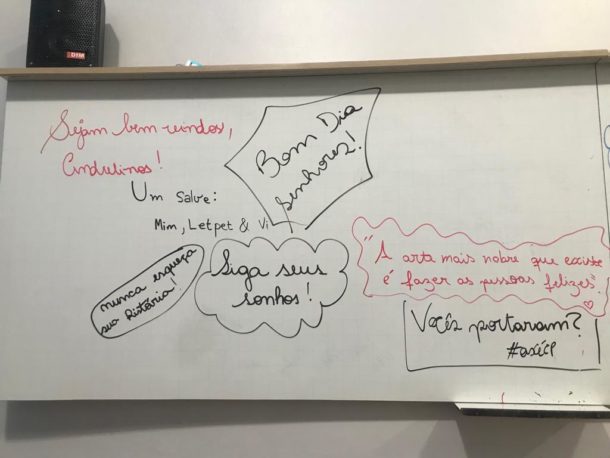 DYM
Sejam bem-vindos,
Andrelinos!
Bom Dia
senhorez!
Um Salve:
Mim, Letpet & Vi
nunca esqueça
sua história!
Siga seus
sonhos!
"A arta mais nobre que existe
é fazer as pessoas felizes".
Vocês portaram?